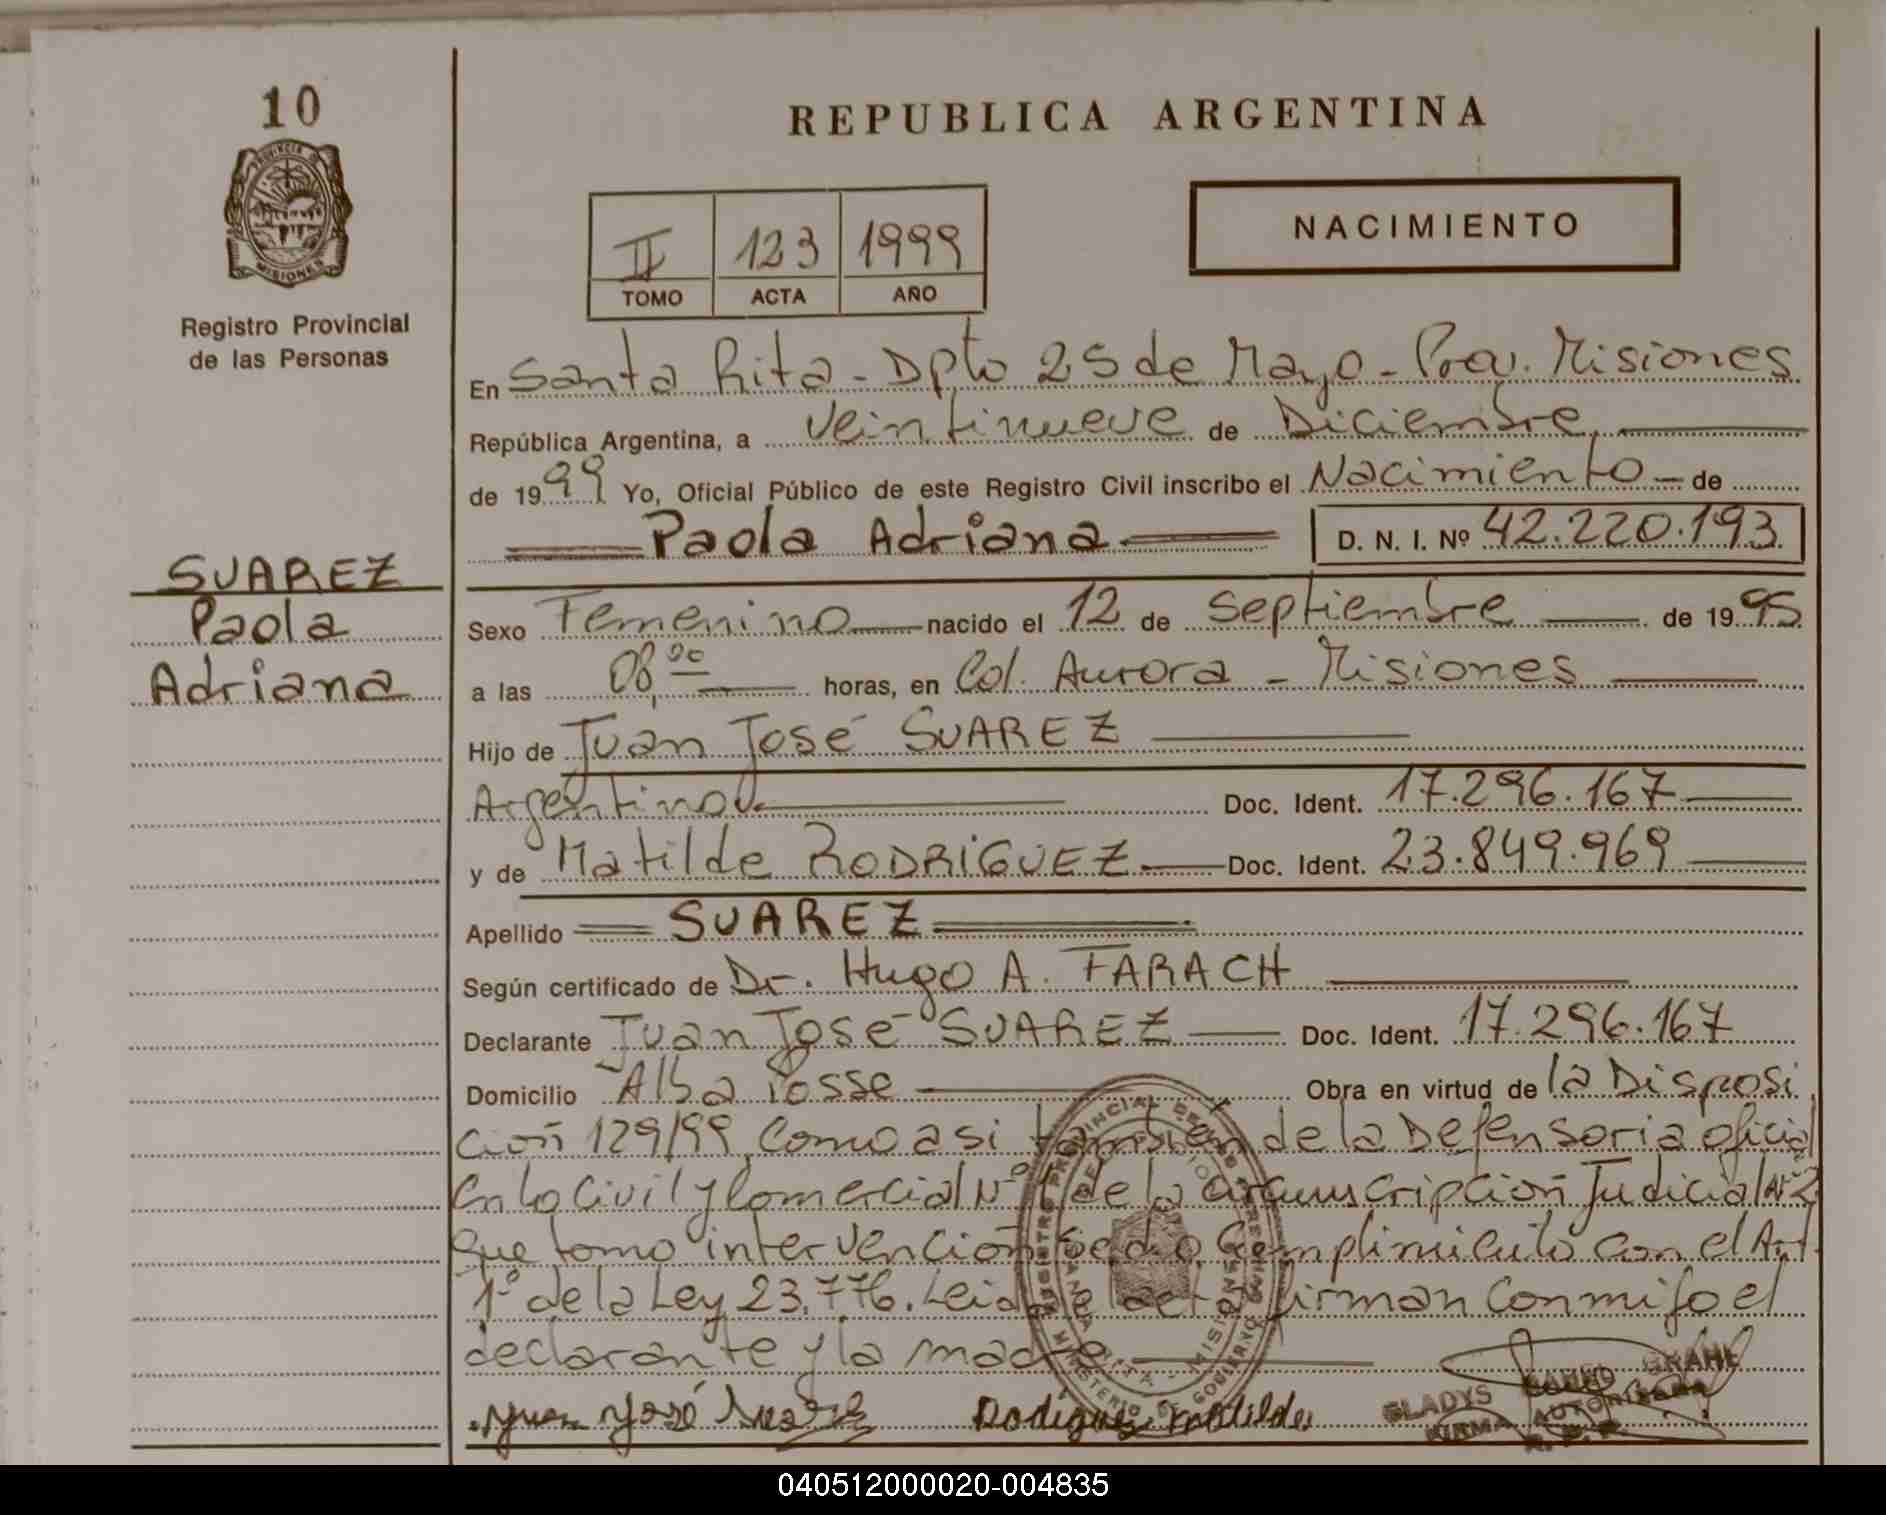 10
PROVINCIA D
MISIONES
Registro Provincial
de las Personas
SUAREZ
Paola
Adriana
REPUBLICA ARGENTINA
NACIMIENTO
II 123 1999
TOMO ACTA AÑO
En Santa Rita - Dpto 25 de Mayo - Prov. Misiones
República Argentina, a veintinueve de Diciembre
de 1999 Yo, Oficial Público de este Registro Civil inscribo el Nacimiento de
Paola Adriana D. N. I. Nº 42.220.193
Sexo Femenino nacido el 12 de septiembre de 1995
a las 08,00 horas, en Col. Aurora - Misiones
Hijo de Juan José SUAREZ
Argentino Doc. Ident. 17.296.167
y de Matilde RODRIGUEZ Doc. Ident. 23.849.969
Apellido SUAREZ
Según certificado de Dr. Hugo A. FARACH
Declarante Juan José SUAREZ Doc. Ident. 17.296.167
Domicilio Alba Posse Obra en virtud de la Disposi
ción 129/99 Como asi también de la Defensoria oficial
en lo Civil y Comercial Nº 1 de la circunscripción Judicial Nº 2
que tomo intervención Se dio Cumplimiento con el Art.
1º de la Ley 23.776. Leida el acta firman Conmigo el
declarante y la madre
Juan José Suarez Rodriguez Matilde GLADYS GRAHL
FIRMA AUTORIZADA
R. P. P.
REGISTRO PROVINCIAL DE LAS PERSONAS
MINISTERIO DE GOBIERNO
SANTA RITA - MISIONES
040512000020-004835